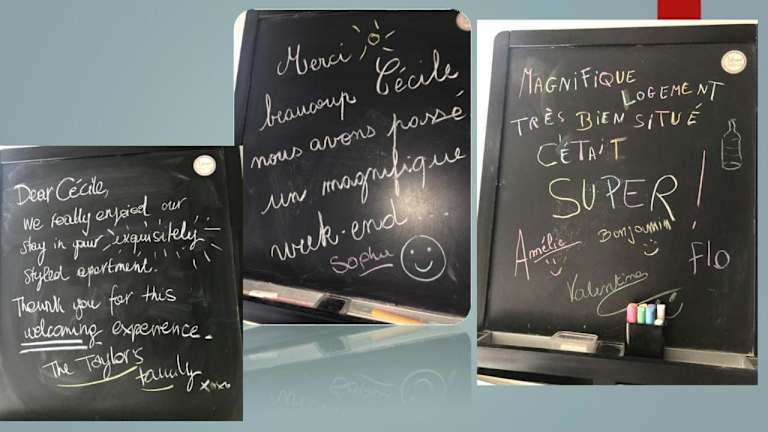 Dear Cécile,
we really enjoied our
stay in your exquisitely
styled apartment.
Thank you for this
welcoming experience.
The Taylor's
family xoxo
Merci
beaucoup Cécile
nous avons passé
un magnifique
week-end....
Sophie
MAGNIFIQUE
LOGEMENT
TRÈS BIEN SITUÉ
C'ÉTAIT
SUPER!
Amélie Benjamin Flo
Valentine